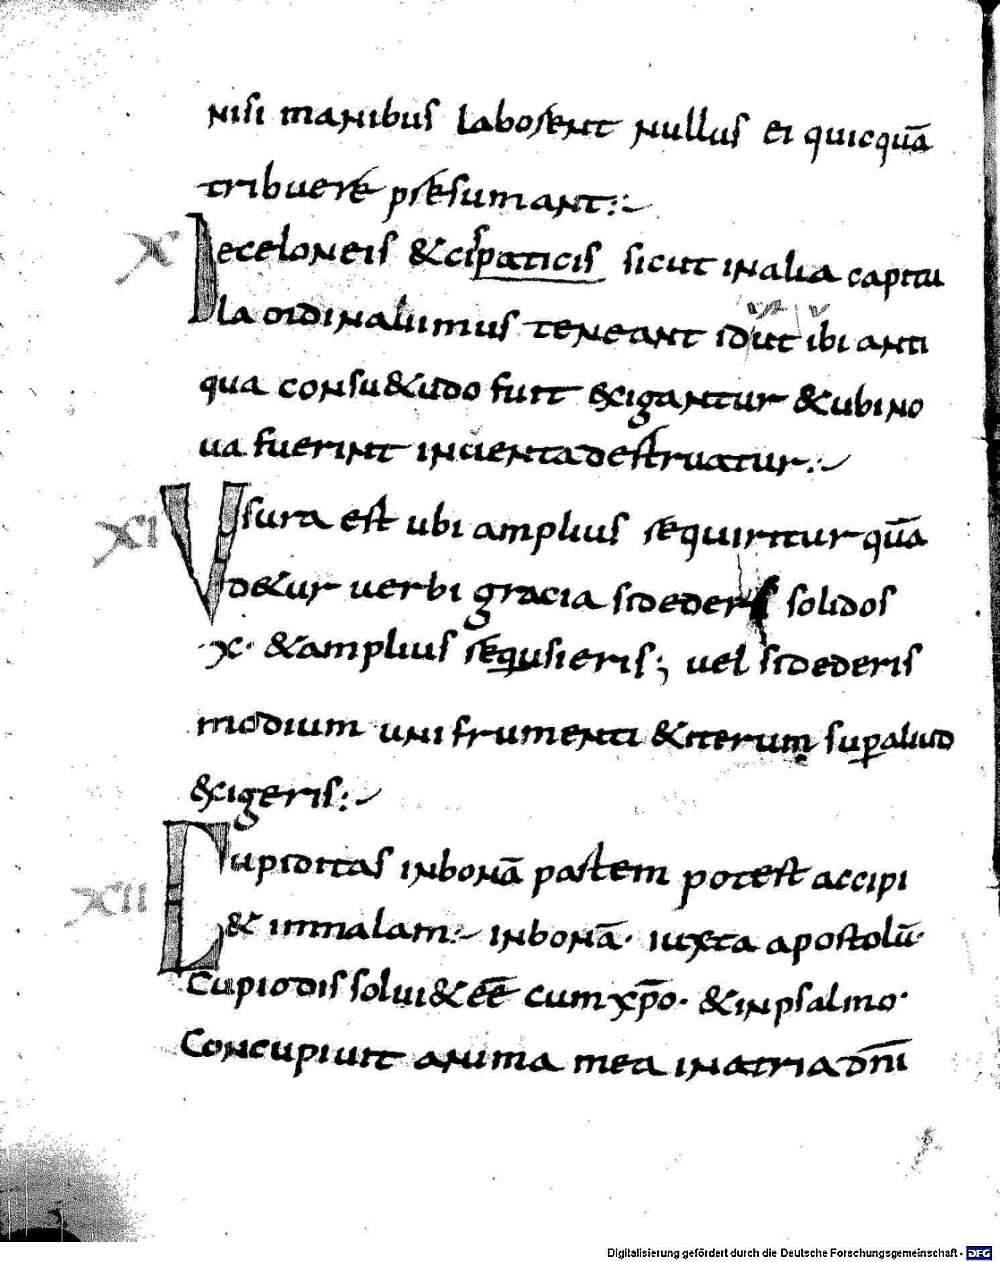 nisi manibus laborent nullus ei quicquā
tribuere presumant:~
X Deceloneis &cispaticis sicut inalia capitu
la ordinauimus teneant s&ut ibi anti
qua consu&udo fuit &cigantur &ubi no
ua fuerint inuenta destruatur:~
XI Vsura est ubi amplius requiritur quā
d&ur uerbi gracia si dederis solidos
·X· &amplius requsieris; uel si dederis
modium uni frumenti &iterum sup aliud
&cigeris:~
XII Cupiditas inbonā partem potest accipi
& inmalam:~ inbonā· iuxta apostolū·
Cupio dissolui &eē cum xp̄o· &inpsalmo·
Concupiuit anima mea inatria dn̄i
Digitalisierung gefördert durch die Deutsche Forschungsgemeinschaft - DFG